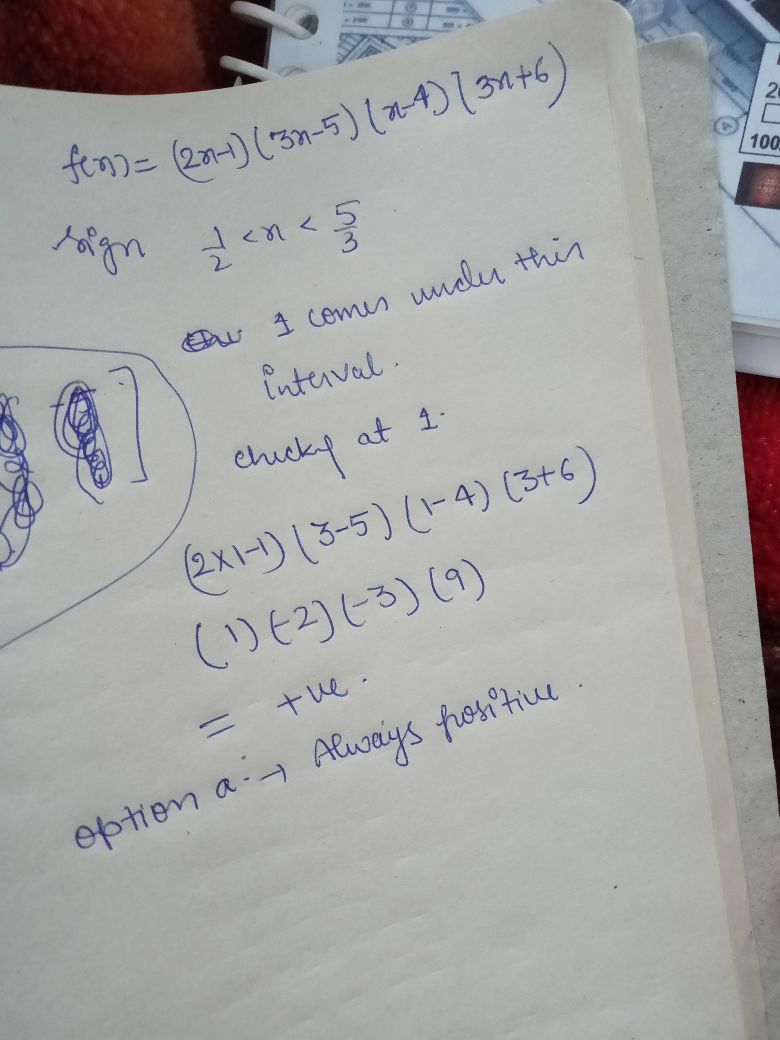 f(x) = (2x-1)(3x-5)(x-4)(3x+6)
sign 1/2 < x < 5/3
1 comes under this
interval.
checky at 1.
(2×1-1)(3-5)(1-4)(3+6)
(1)(-2)(-3)(9)
= +ve.
option a. → Always positive.
100